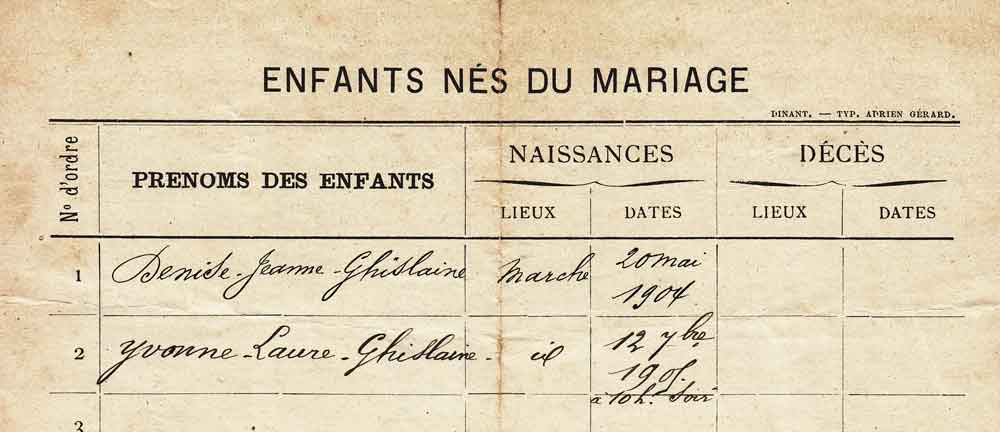 ENFANTS NÉS DU MARIAGE
DINANT. — TYP. ADRIEN GÉRARD.
N° d'ordre
PRENOMS DES ENFANTS
NAISSANCES
DÉCÈS
LIEUX DATES LIEUX DATES
1 Denise-Jeanne-Ghislaine Marche 20 mai
1904
2 Yvonne-Laure-Ghislaine - 12 7bre
à 10h. soir
3